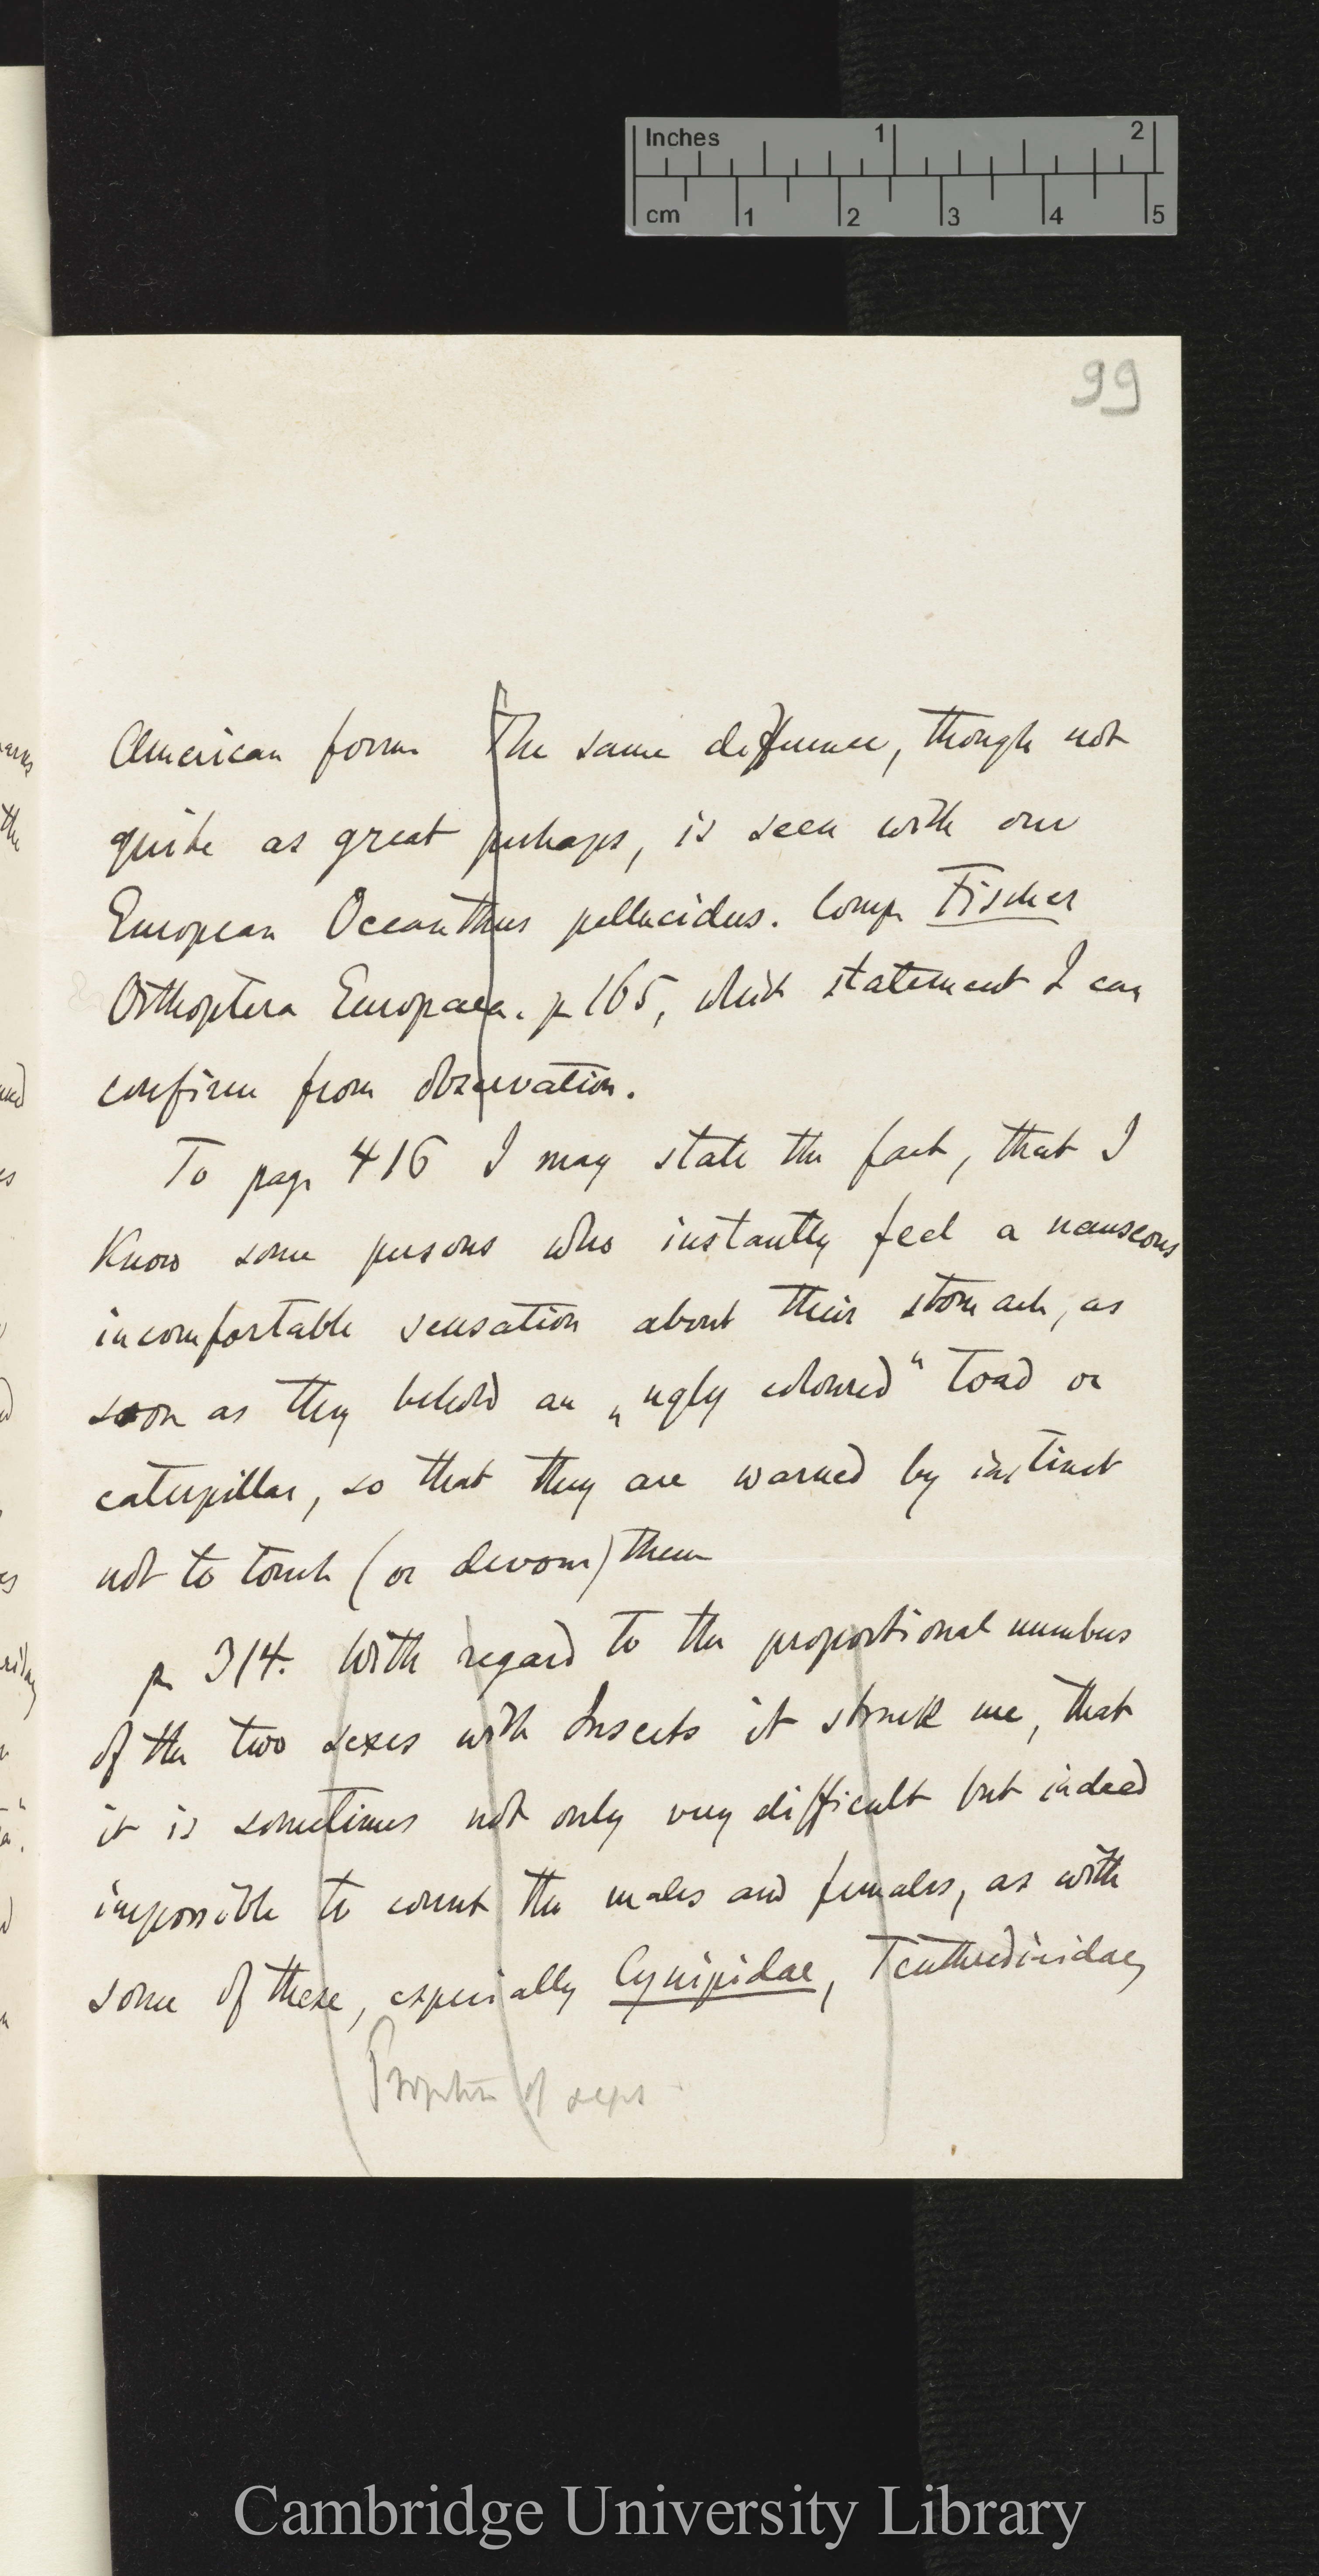 Inches 1 2
cm 1 2 3 4 5
99
American form The same difference, though not
quite as great perhaps, is seen with our
European Oecanthus pellucidus. Comp. Fischer
Orthoptera Europaea. p 165, which statement I can
confirm from observation.
To page 416 I may state the fact, that I
know some persons who instantly feel a nauseous
incomfortable sensation about their stomach, as
soon as they behold an „ugly coloured“ toad or
caterpillar, so that they are warned by instinct
not to touch (or devour) them
p 314. With regard to the proportional numbers
of the two sexes with Insects it struck me, that
it is sometimes not only very difficult but indeed
impossible to count the males and females, as with
some of these, especially Cynipidae, Tenthredinidae,
Proportion of sexes
Cambridge University Library